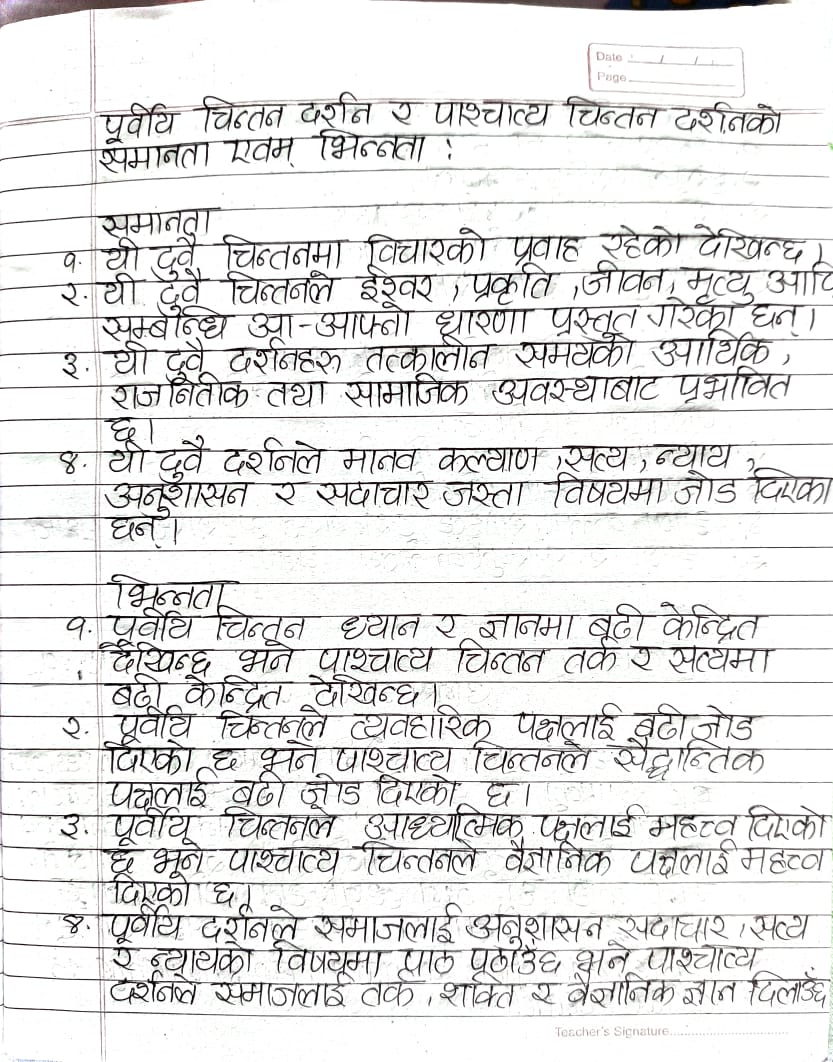 Date
Page
पूर्वीय चिन्तन दर्शन र पाश्चात्य चिन्तन दर्शनको
समानता एवम् भिन्नता :
समानता
१. यी दुवै चिन्तनमा विचारको प्रवाह रहेको देखिन्छ।
२. यी दुवै चिन्तनले ईश्वर, प्रकृति, जीवन, मृत्यु आदि
सम्बन्धि आ-आफ्नो धारणा प्रस्तुत गरेका छन्।
३. यी दुवै दर्शनहरू तत्कालीन समयको आर्थिक,
राजनितीक तथा सामाजिक अवस्थाबाट प्रभावित
छ।
४. यी दुवै दर्शनले मानव कल्याण, सत्य, न्याय,
अनुशासन र सदाचार जस्ता विषयमा जोड दिएका
छन्।
भिन्नता
१. पूर्वीय चिन्तन ध्यान र ज्ञानमा बढी केन्द्रित
देखिन्छ भने पाश्चात्य चिन्तन तर्क र सत्यमा
बढी केन्द्रित देखिन्छ।
२. पूर्वीय चिन्तनले व्यवहारिक पक्षलाई बढी जोड
दिएको छ भने पाश्चात्य चिन्तनले सैद्धान्तिक
पक्षलाई बढी जोड दिएको छ।
३. पूर्वीय चिन्तनले आध्यात्मिक पक्षलाई महत्त्व दिएको
छ भने पाश्चात्य चिन्तनले वैज्ञानिक पक्षलाई महत्त्व
दिएको छ।
४. पूर्वीय दर्शनले समाजलाई अनुशासन सदाचार, सत्य
र न्यायको विषयमा पाठ पढाउँछ भने पाश्चात्य
दर्शनले समाजलाई तर्क, शक्ति र वैज्ञानिक ज्ञान दिलाउँछ
Teacher's Signature